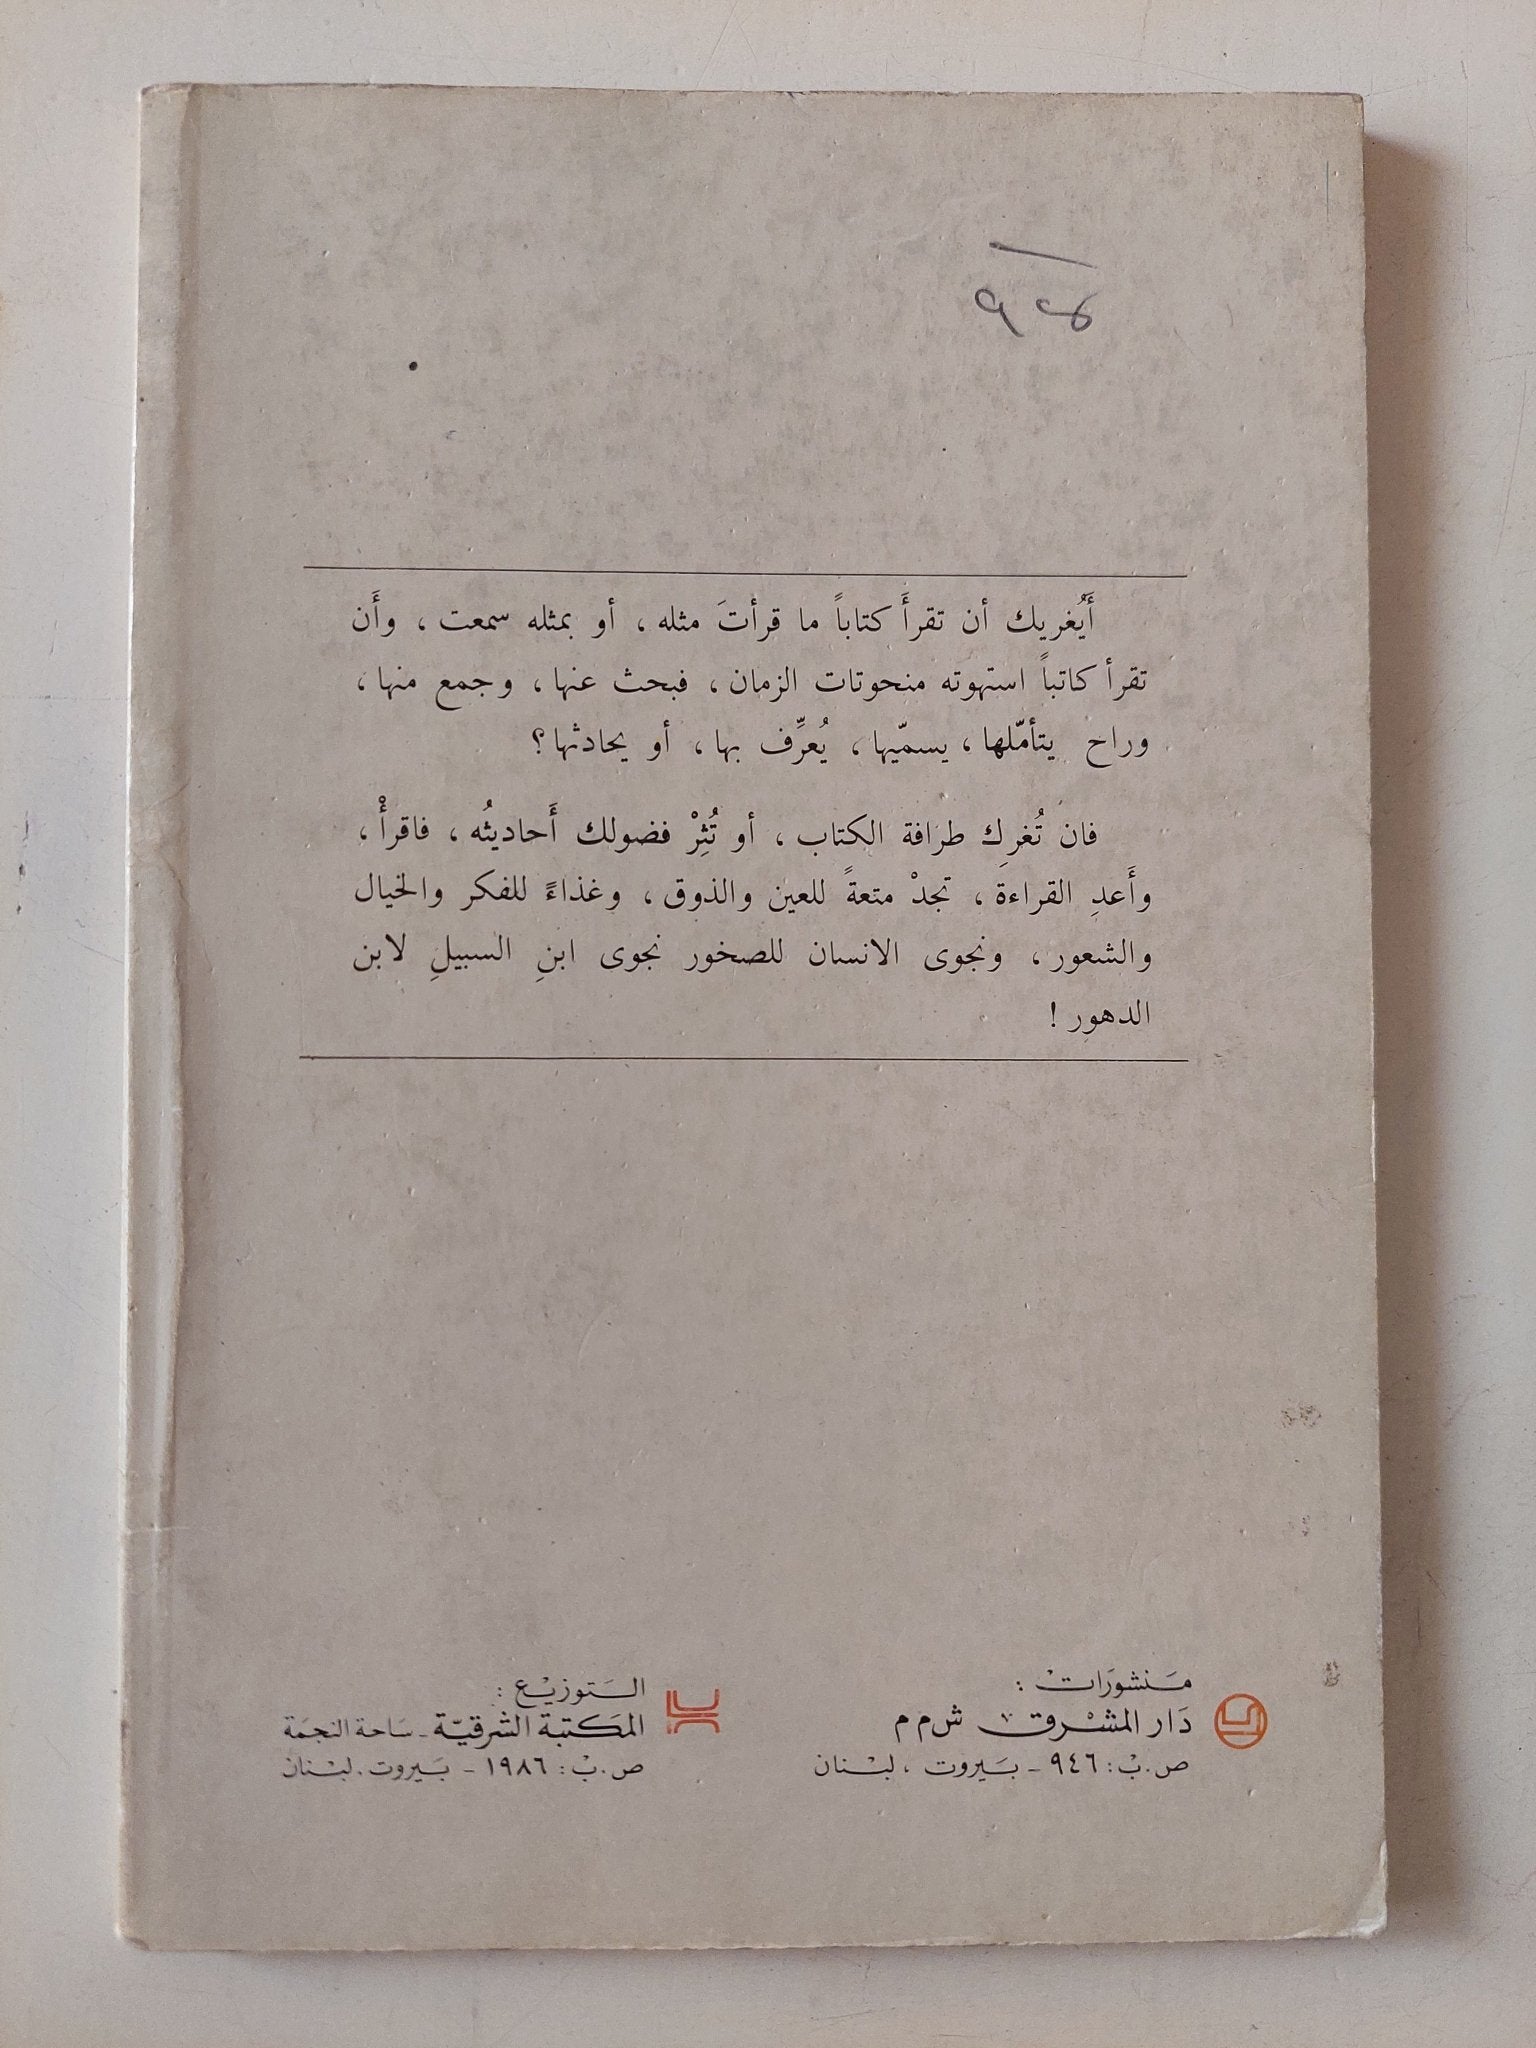 أَيُغريك أن تقرأَ كتاباً ما قرأتَ مثله ، أو بمثله سمعت ، وأَن
تقرأ كاتباً استهوته منحوتات الزمان ، فبحث عنها ، وجمع منها ،
وراح يتأمّلها ، يسمّيها ، يُعرِّف بها ، أو يحادثها ؟
فان تُغرِك طرافة الكتاب ، أو تُثِرْ فضولك أَحاديثُه ، فاقرأْ ،
وأَعدِ القراءة ، تجدْ متعةً للعين والذوق ، وغذاءً للفكر والخيال
والشعور ، ونجوى الانسان للصخور نجوى ابنِ السبيلِ لابن
الدهور !
مَنشورَات :
دَار المشرق ش م م
ص.بْ : ٩٤٦ - بَيروت ، لبْنان
التَوزيْع :
المَكتبة الشرقيّة - سَاحة النجمَة
ص.بْ : ١٩٨٦ - بَيروت، لبْنان